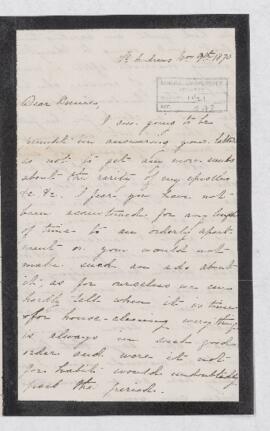 St Andrews Nov 9th 1870
1821
Dear
I am going to be
prompt in answering your letter
as not to get any more snubs
about the rarity of my epistles
&c &c. I fear you have not
been accustomed for any length
of time to an orderly apart-
ment or you would not
make such an ado about
it; as for ourselves we can
hardly tell when it is time
for house-cleaning everything
is always in such good
order and were it not
for habit would undoubtedly
pass the period.